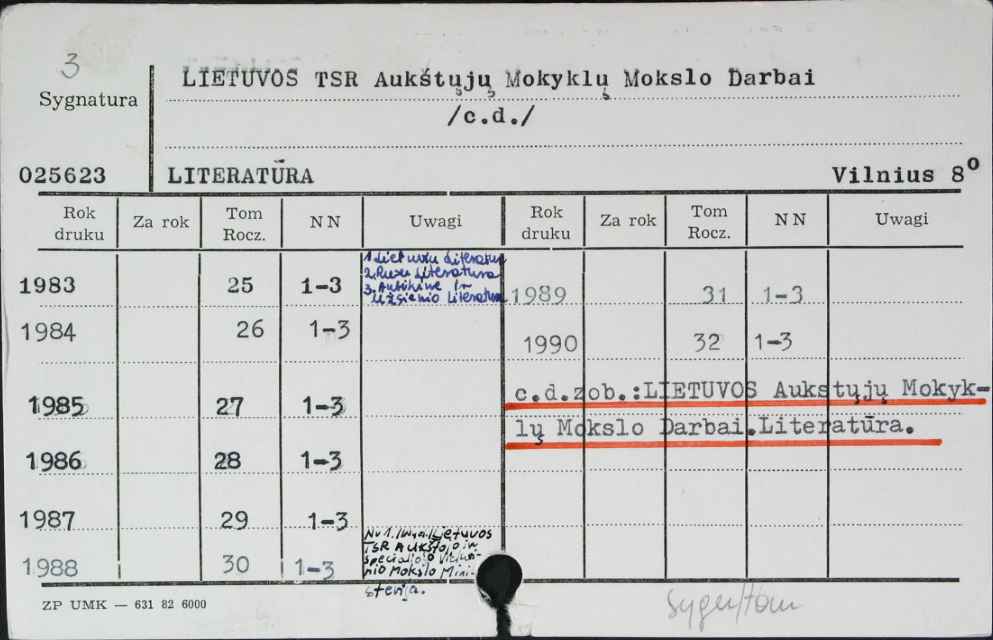 3
Sygnatura
LIETUVOS TSR Aukštųjų Mokyklų Mokslo Darbai
/c.d./
025623 LITERATŪRA Vilnius 8º
Rok druku Za rok Tom Rocz. NN Uwagi Rok druku Za rok Tom Rocz. NN Uwagi
1983 25 1-3
1. Lietuvių Literatūra
2. Rusų Literatūra
3. Antikinė ir
Užsienio Literatūra
1989 31 1-3
1984 26 1-3
1990 32 1-3
1985 27 1-3
c.d.zob.:LIETUVOS Aukstųjų Mokyk-
lų Mokslo Darbai.Literatūra.
1986 28 1-3
1987 29 1-3
1988 30 1-3
Nr 1. Lietuvos
TSR Aukštojo ir
specialiojo
nio Mokslo Mini-
sterija.
ZP UMK — 631 82 6000